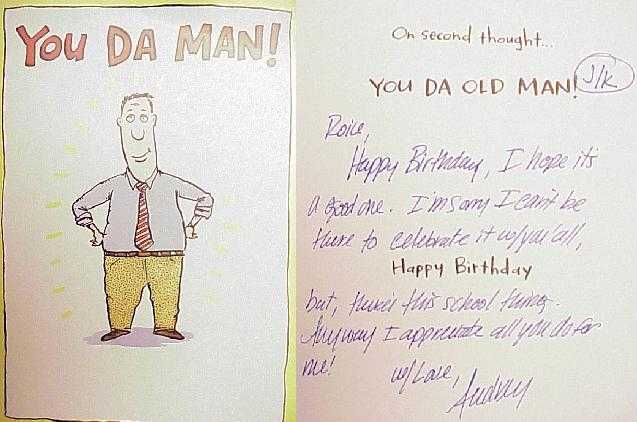 YOU DA MAN!
On second thought...
YOU DA OLD MAN! J/K
Roice,
Happy Birthday, I hope it's
a good one. I'm sorry I can't be
there to celebrate it w/you all,
Happy Birthday
but, there's this school thing.
Anyway I appreciate all you do for
me!
w/Love,
Audrey